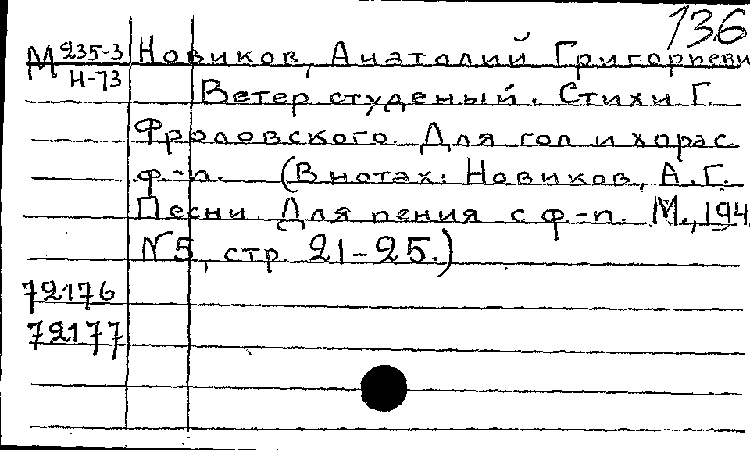 136
М 235-3 Новиков, Анатолий Григорьеви
Н-73 Ветер студеный. Стихи Г.
Фроловского. Для гол и хора с
ф.-п. (В нотах: Новиков, А.Г.
Песни. Для пения с ф.-п. М., 194
№5, стр. 21-25.)
72176
72177